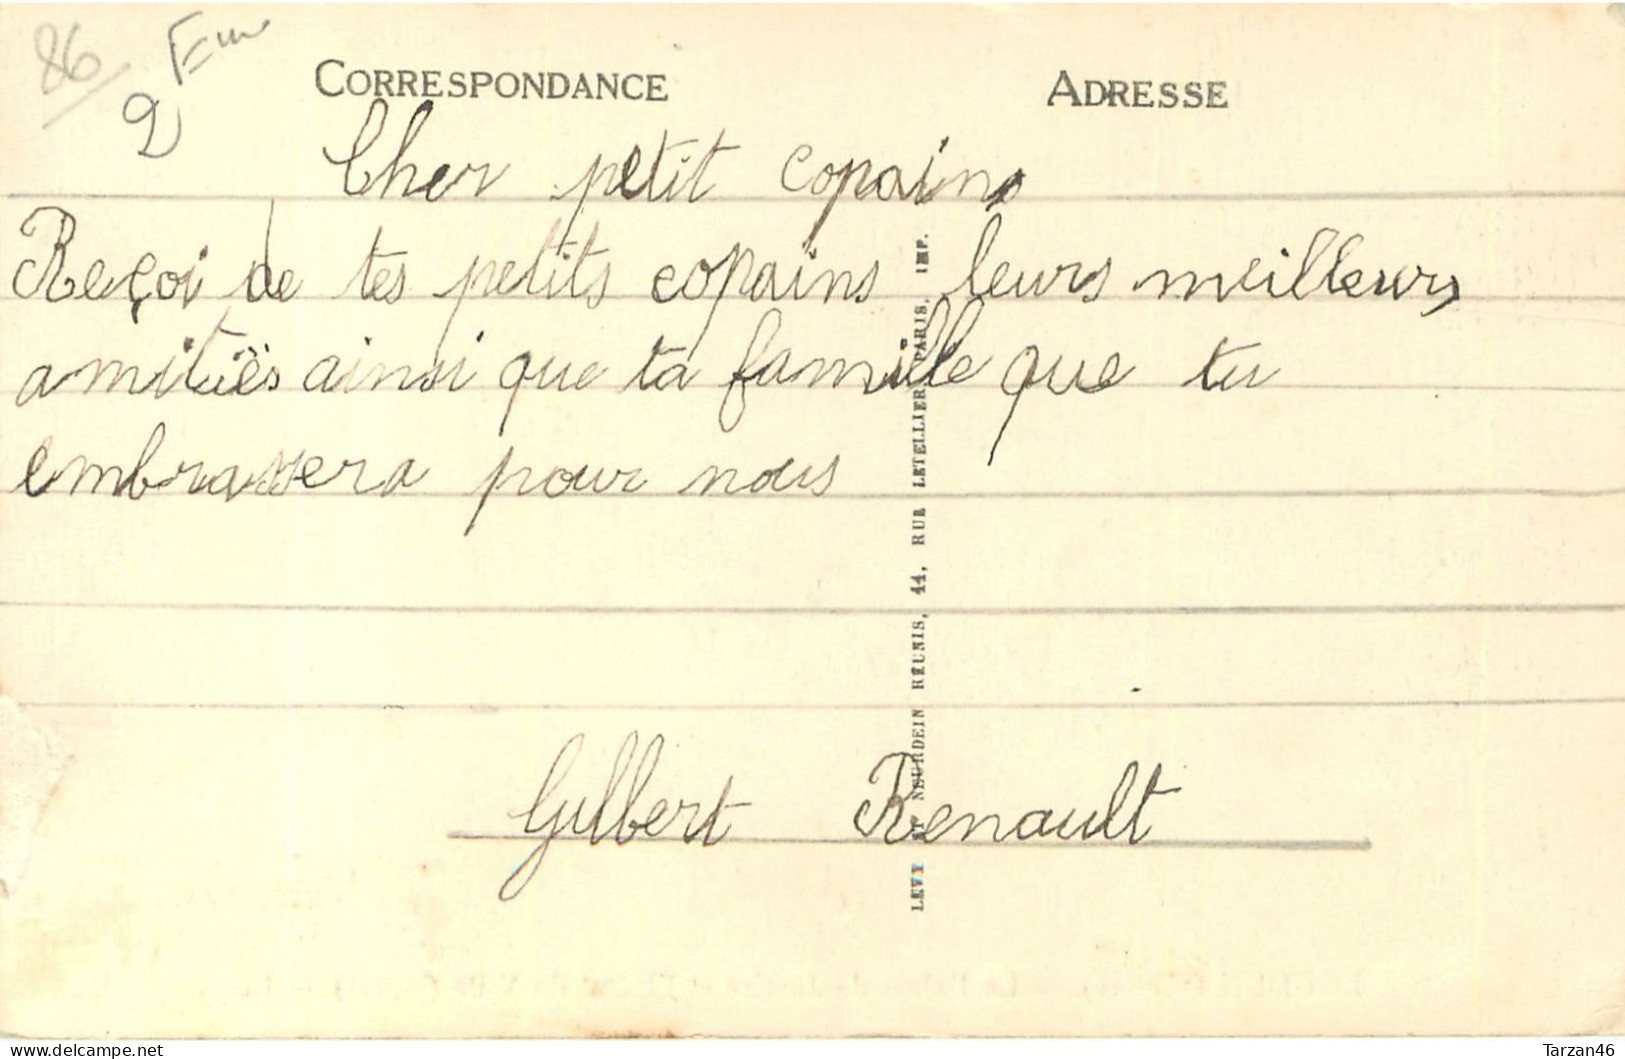 86
2
CORRESPONDANCE
ADRESSE
Cher petit copain
Reçoi de tes petits copains leurs meilleurs
amitiés ainsi que ta famille que tu
embrassera pour nous
Gilbert Renault
LEVY ET NEURDEIN RÉUNIS, 44, RUE LETELLIER, PARIS. IMP.
Tarzan46
delcampe.net